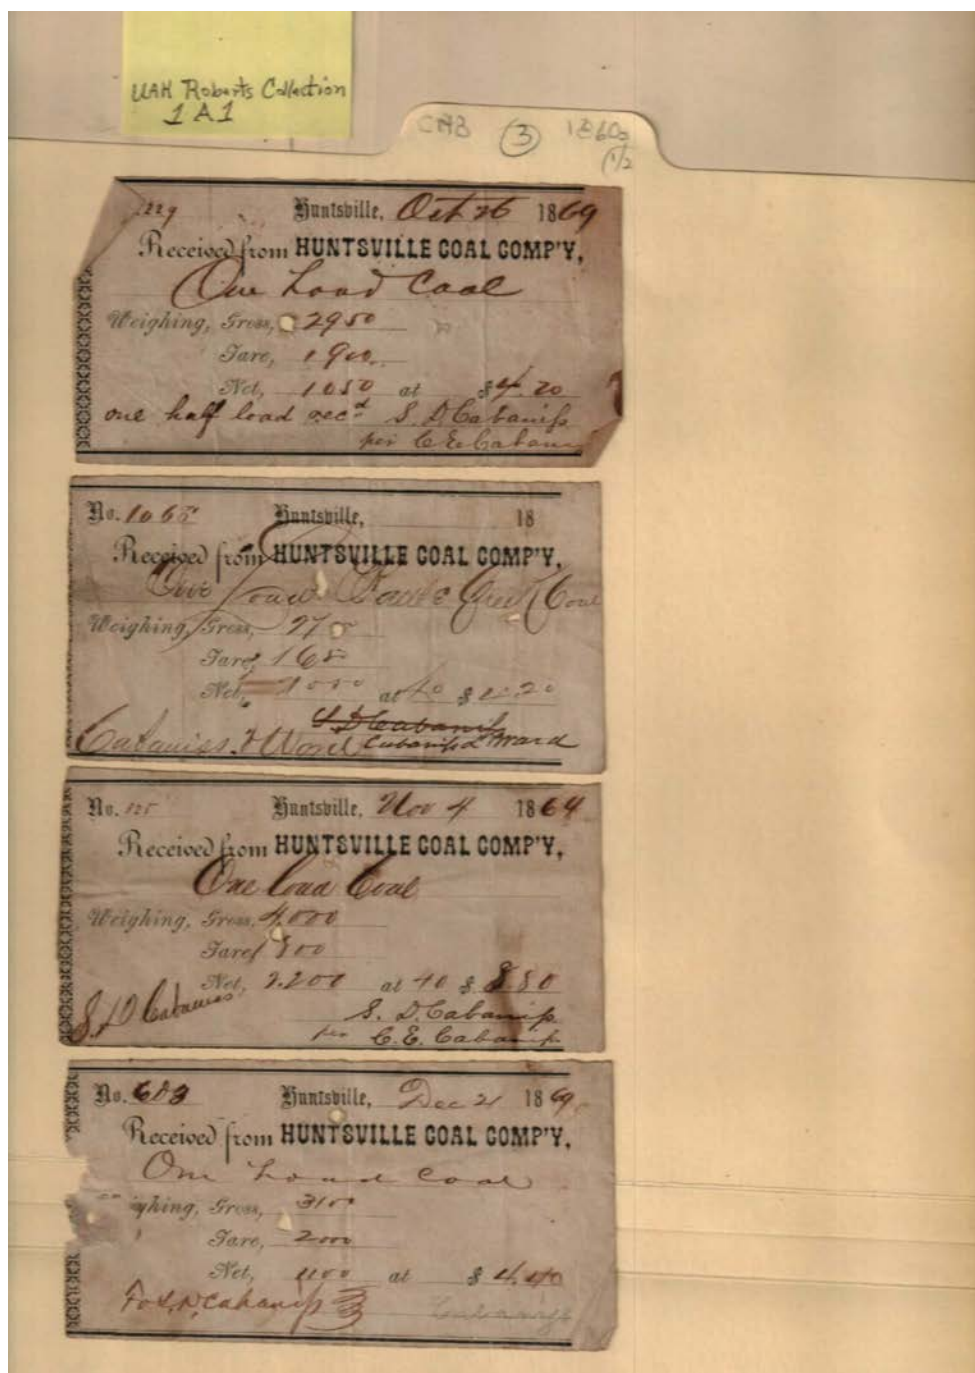 UAH Roberts Collection
1A1
CAB (3) 1860s
(1/2
Huntsville, Oct 26 1869
Received from HUNTSVILLE COAL COMP'Y,
One Load Coal
Weighing, Gross, 2950
Tare, 1900
Net, 1050 at $4.20
one half load recd S. D. Cabaniss
per C. E. Cabaniss
No. 1065 Huntsville, 18
Received from HUNTSVILLE COAL COMP'Y,
One Load Coal
Weighing, Gross, 27
Tare, 165
Net, at 40 $ .20
S D Cabaniss
Cabaniss & Ward Cabaniss & Ward
No. 125 Huntsville, Nov 4 1869
Received from HUNTSVILLE COAL COMP'Y,
One load Coal
Weighing, Gross, 4,000
Tare, 1800
Net, 2.200 at 40 $ 8.80
S. D. Cabaniss S. D. Cabaniss
per C. E. Cabaniss
No. 603 Huntsville, Dec 21 1869
Received from HUNTSVILLE COAL COMP'Y,
One Load Coal
ighing, Gross, 3100
Tare, 2000
Net, 1100 at $ 4.40
Fo S. D. Cabaniss Cabaniss